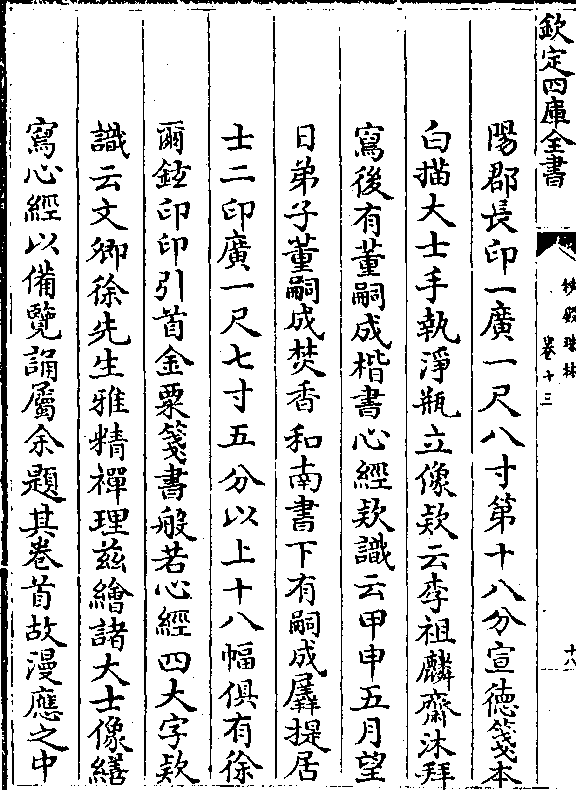 欽定四庫全書
秘殿珠林
卷十三
十八
陽郡長印一廣一尺八寸第十八分宣徳箋本
白描大士手執淨瓶立像欵云李祖麟齋沐拜
寫後有董嗣成楷書心經欵識云甲申五月望
日弟子董嗣成焚香和南書下有嗣成羼提居
士二印廣一尺七寸五分以上十八幅俱有徐
爾鉉印印引首金粟箋書般若心經四大字欵
識云文卿徐先生雅精禪理兹繪諸大士像繕
寫心經以備覽誦屬余題其卷首故漫應之中